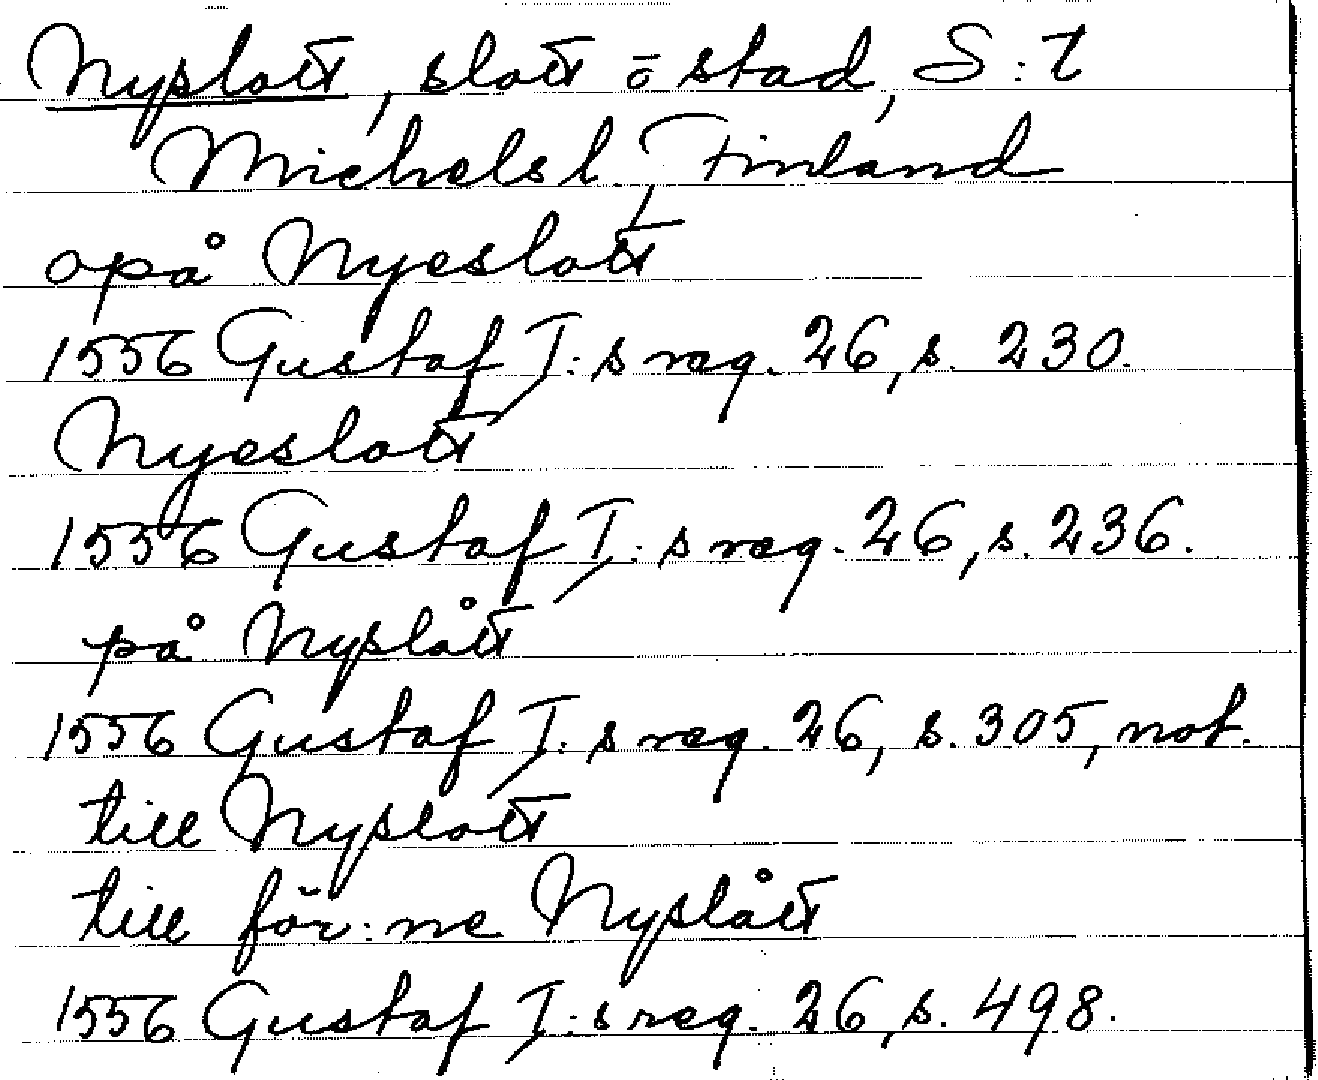 Nyslott, slott o stad, S:t
Michels l., Finland
opå Nyeslott
1556 Gustaf I:s reg. 26, s. 230.
Nyeslott
1556 Gustaf I:s reg. 26, s. 236.
på Nyslått
1556 Gustaf I:s reg. 26, s. 305, not.
till Nyslott
till för:ne Nyslått
1556 Gustaf I:s reg. 26, s. 498.